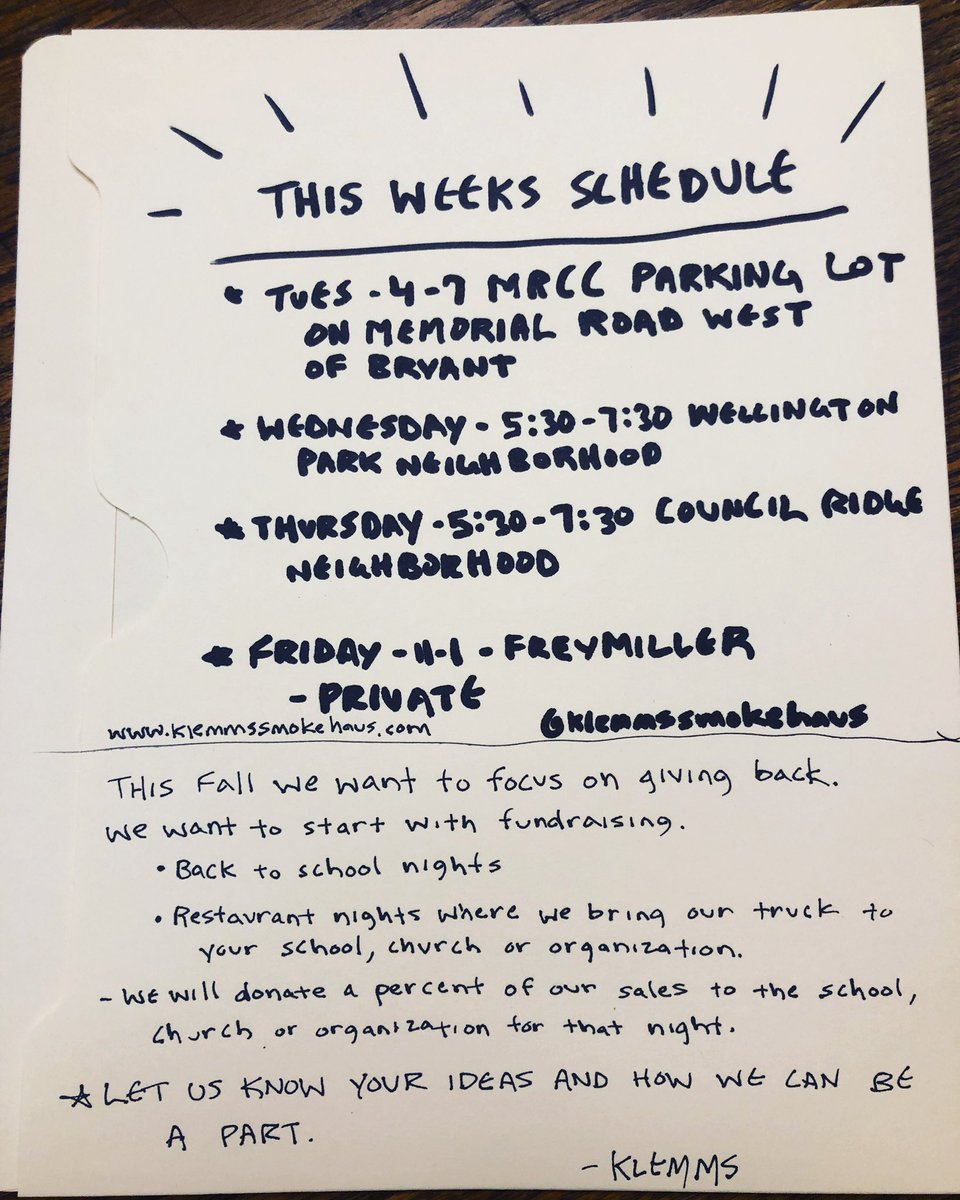 THIS WEEKS SCHEDULE
★ TUES - 4-7 MRCC PARKING LOT
ON MEMORIAL ROAD WEST
OF BRYANT
★ WEDNESDAY - 5:30-7:30 WELLINGTON
PARK NEIGHBORHOOD
★ THURSDAY - 5:30-7:30 COUNCIL RIDGE
NEIGHBORHOOD
★ FRIDAY - 11-1 - FREYMILLER
- PRIVATE
www.klemmssmokehaus.com @klemmssmokehaus
THIS Fall we want to focus on giving back.
We want to start with fundraising.
• Back to school nights
• Restaurant nights where we bring our truck to
your school, church or organization.
- We will donate a percent of our sales to the school,
church or organization for that night.
★ LET US KNOW YOUR IDEAS AND HOW WE CAN BE
A PART.
- KLEMMS